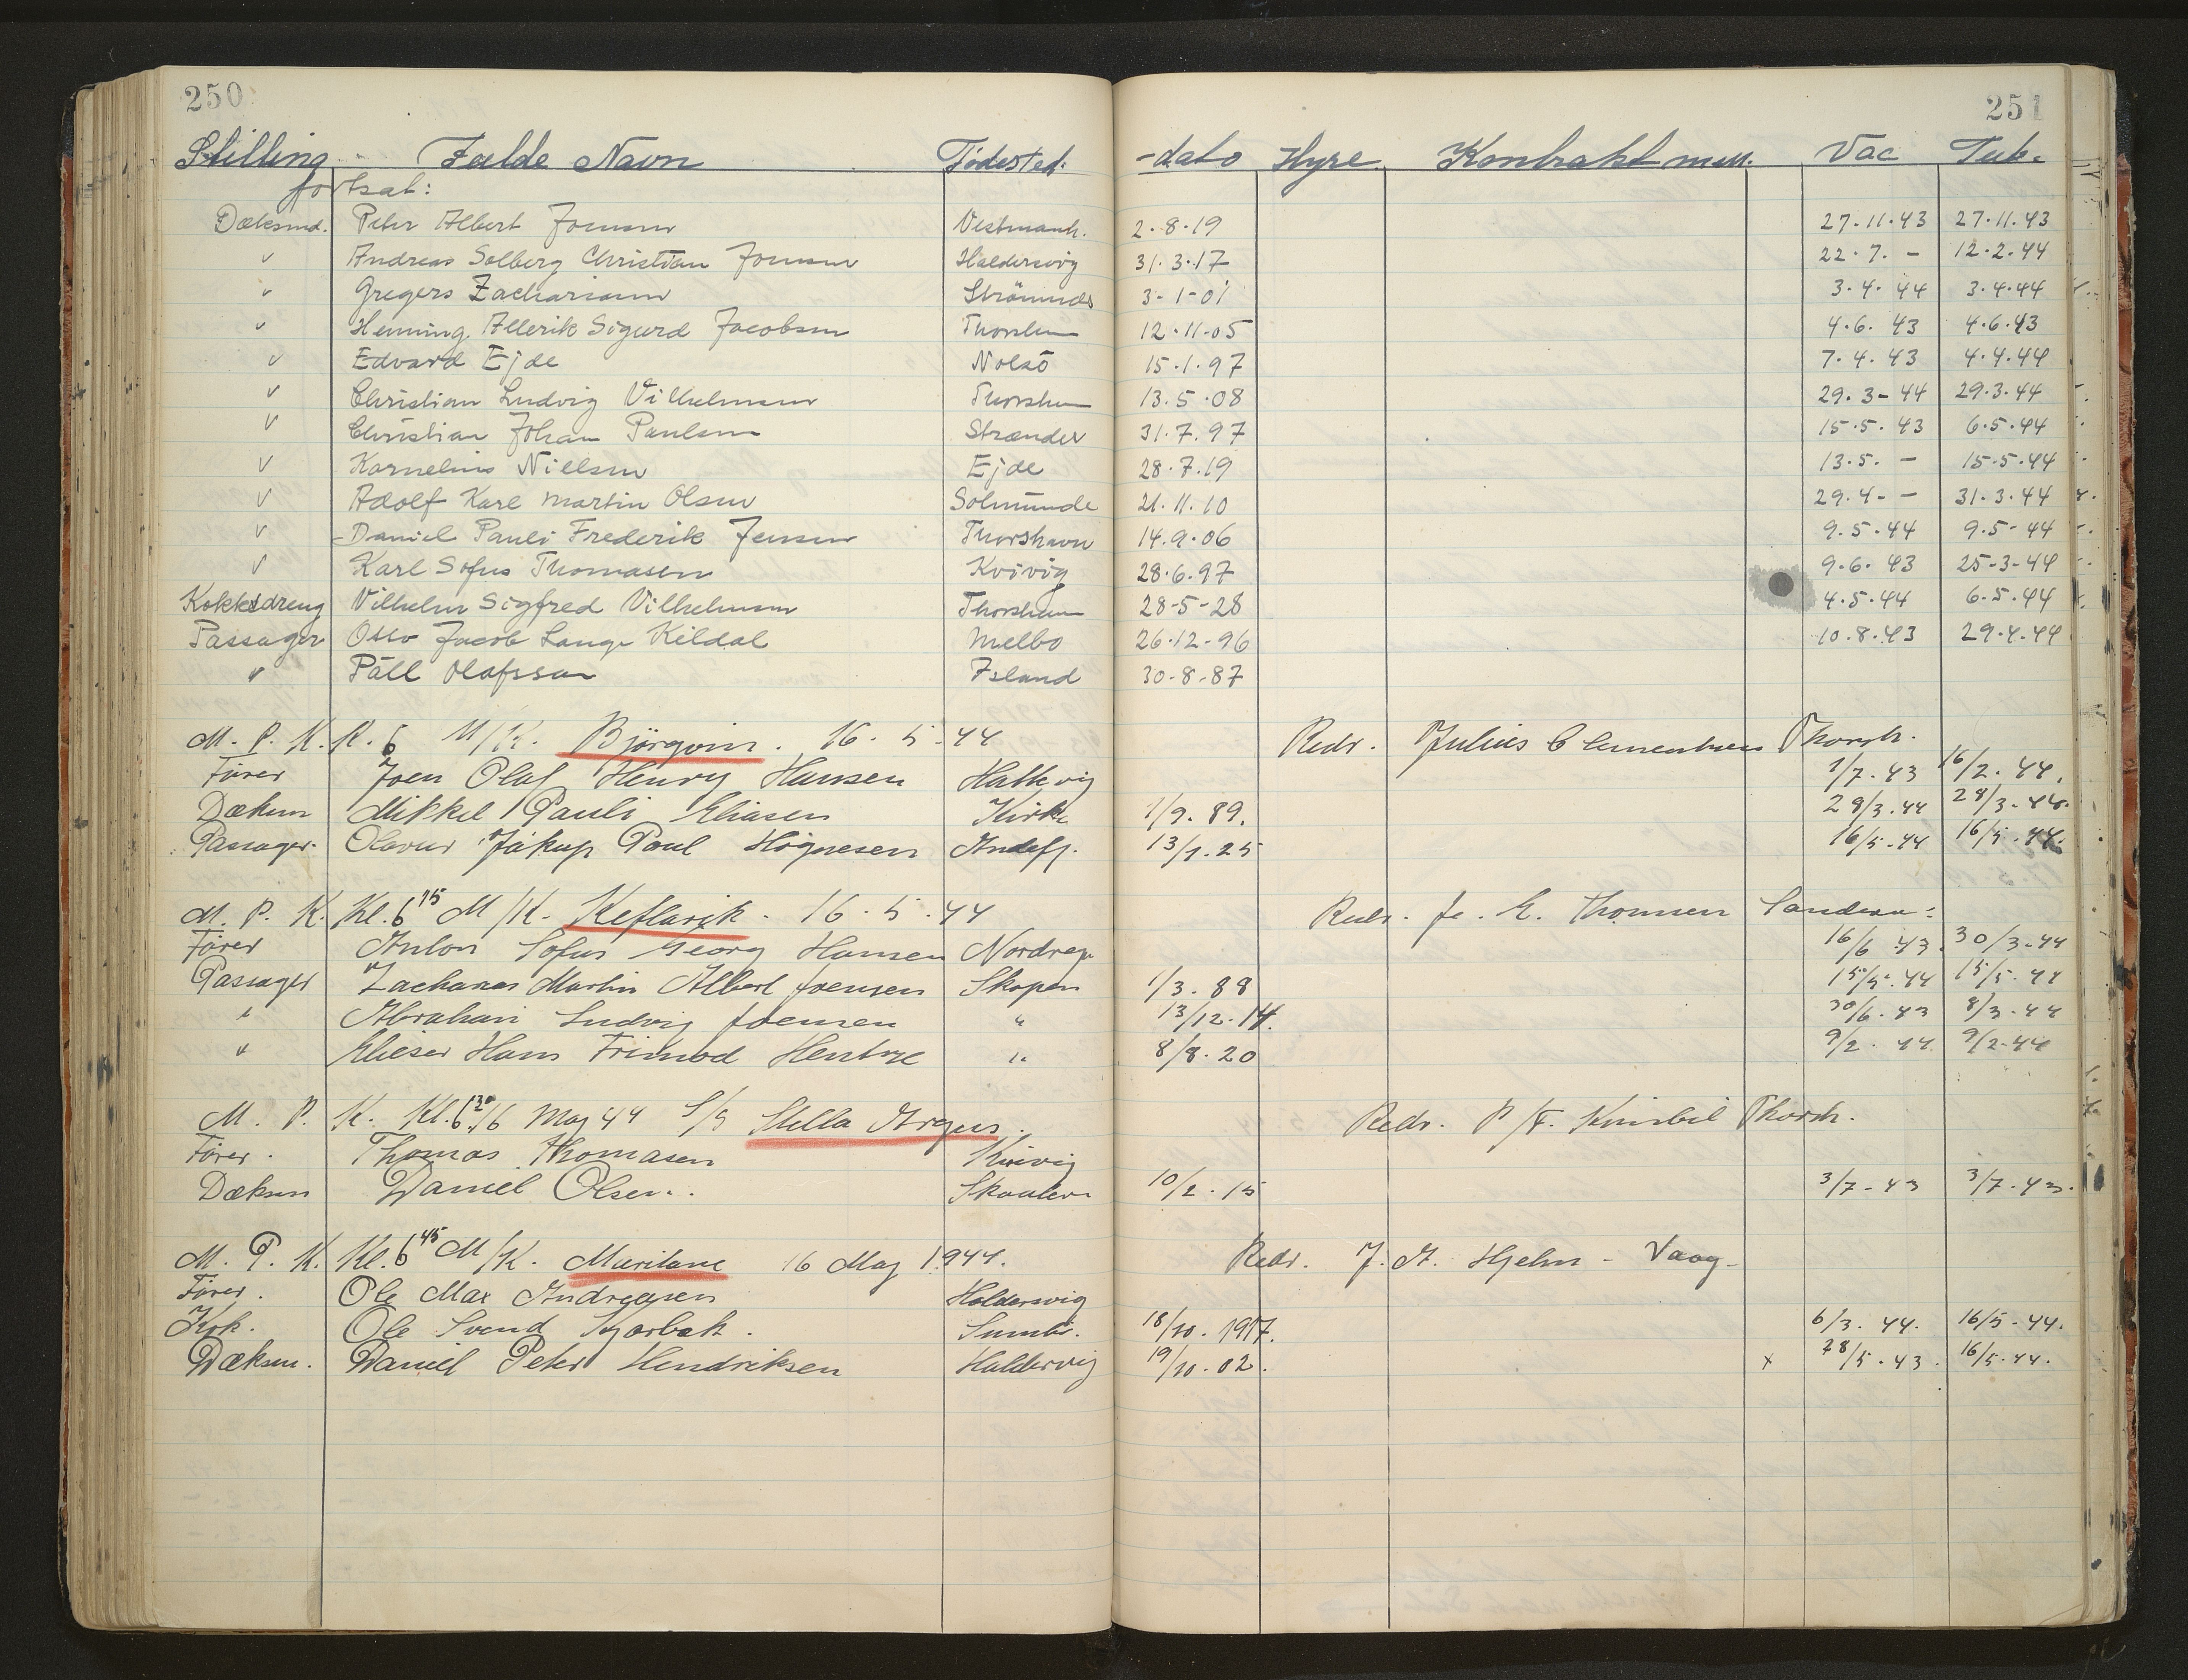 250 251
Stilling Fulde Navn Fødested. -dato Hyre Kontrakt m.m. Vac Tub.
fortsat:
Dæksmd. Peter Albert Joensen Vestmanh. 2.8.19 27.11.43 27.11.43
v Andreas Solberg Christian Joensen Haldersvig 31.3.17 22.7. - 12.2.44
v Gregers Zachariasen Strömnæs 3-1-01 3.4.44 3.4.44
v Henning Allerik Sigurd Jacobsen Thorshavn 12.11-05 4.6.43 4.6.43
v Edvard Ejde Nolsö 15.1.97 7.4.43 4.4.44
v Christian Ludvig Vilhelmsen Thorshavn 13.5.08 29.3-44 29.3.44
v Christian Johan Paulsen Strænder 31.7.97 15.5.43 6.5.44
v Kornelius Nielsen Ejde 28.7.19 13.5. - 15.5.44
v Adolf Karl Martin Olsen Solmunde 21.11.10 29.4- - 31.3.44
v Daniel Pauli Frederik Jensen Thorshavn 14.9.06 9.5.44 9.5-44
v Karl Sofus Thomasen Kvivig 28.6.97 9.6.43 25-3-44
Kokksdreng Vilhelm Sigfred Vilhelmsen Thorshavn 28-5-28 4.5.44 6.5.44
Passager Otto Jacob Lange Kildal Melbo 26.12-96 10.8.43 29.4.44
v Páll Olafsson Island 30-8-87
M. P. K. K. 6 M/K. Björgvin. 16. 5. 44 Redr. Julius Clementsen Thorsh.
Fører Joen Olaf Henry Hansen Hattevig 1/7.43 16/2.44.
Dæksm Mikkel Pauli Eliasen Kirke 1/9.89. 29/3.44 29/3-44.
Passager. Olavur Jákup Poul Högnesen Andefj. 13/1.25 16/5-44 16/5.44.
M. P. K. Kl. 6 15 M/K. Keflavik. 16.5.44 Redr. J. E. Thomsen Sandevaag
Fører Anton Sofus Georg Hansen Nordrag 16/6 43. 30/3-44
Passager Zacharias Martin Albert Joensen Skopen 1/3.88 15/5.44 15/5.44
" Abraham Ludvig Joensen " 13/12.14. 30/6.43 8/3.44
" Elieser Hans Trimod Hentze " 8/8.20 9/2.44 9/2-44
M. P. K. Kl. 6 30 16 Maj 44 S/S Stella Argus. Redr. P/F. Kinbil Thorsh.
Fører. Thomas Thomasen Kvivig
Dæksm Daniel Olsen. Skaalev. 10/2.15 3/7-43 3/7.43.
M. P. K. Kl. 6 45 M/K. Muritane 16 Maj 1944. Redr. J. A. Hjelm - Vaag-
Fører. Ole Max Andreasen Haldersvig
Kok. Ole Svend Kjærbæk. Sumbö. 18/10.1917. 6/3.44. 16/5-44.
Dæksm. Daniel Peter Hendriksen Haldersvig 19/10.02. x 28/5.43. 16/5.44.